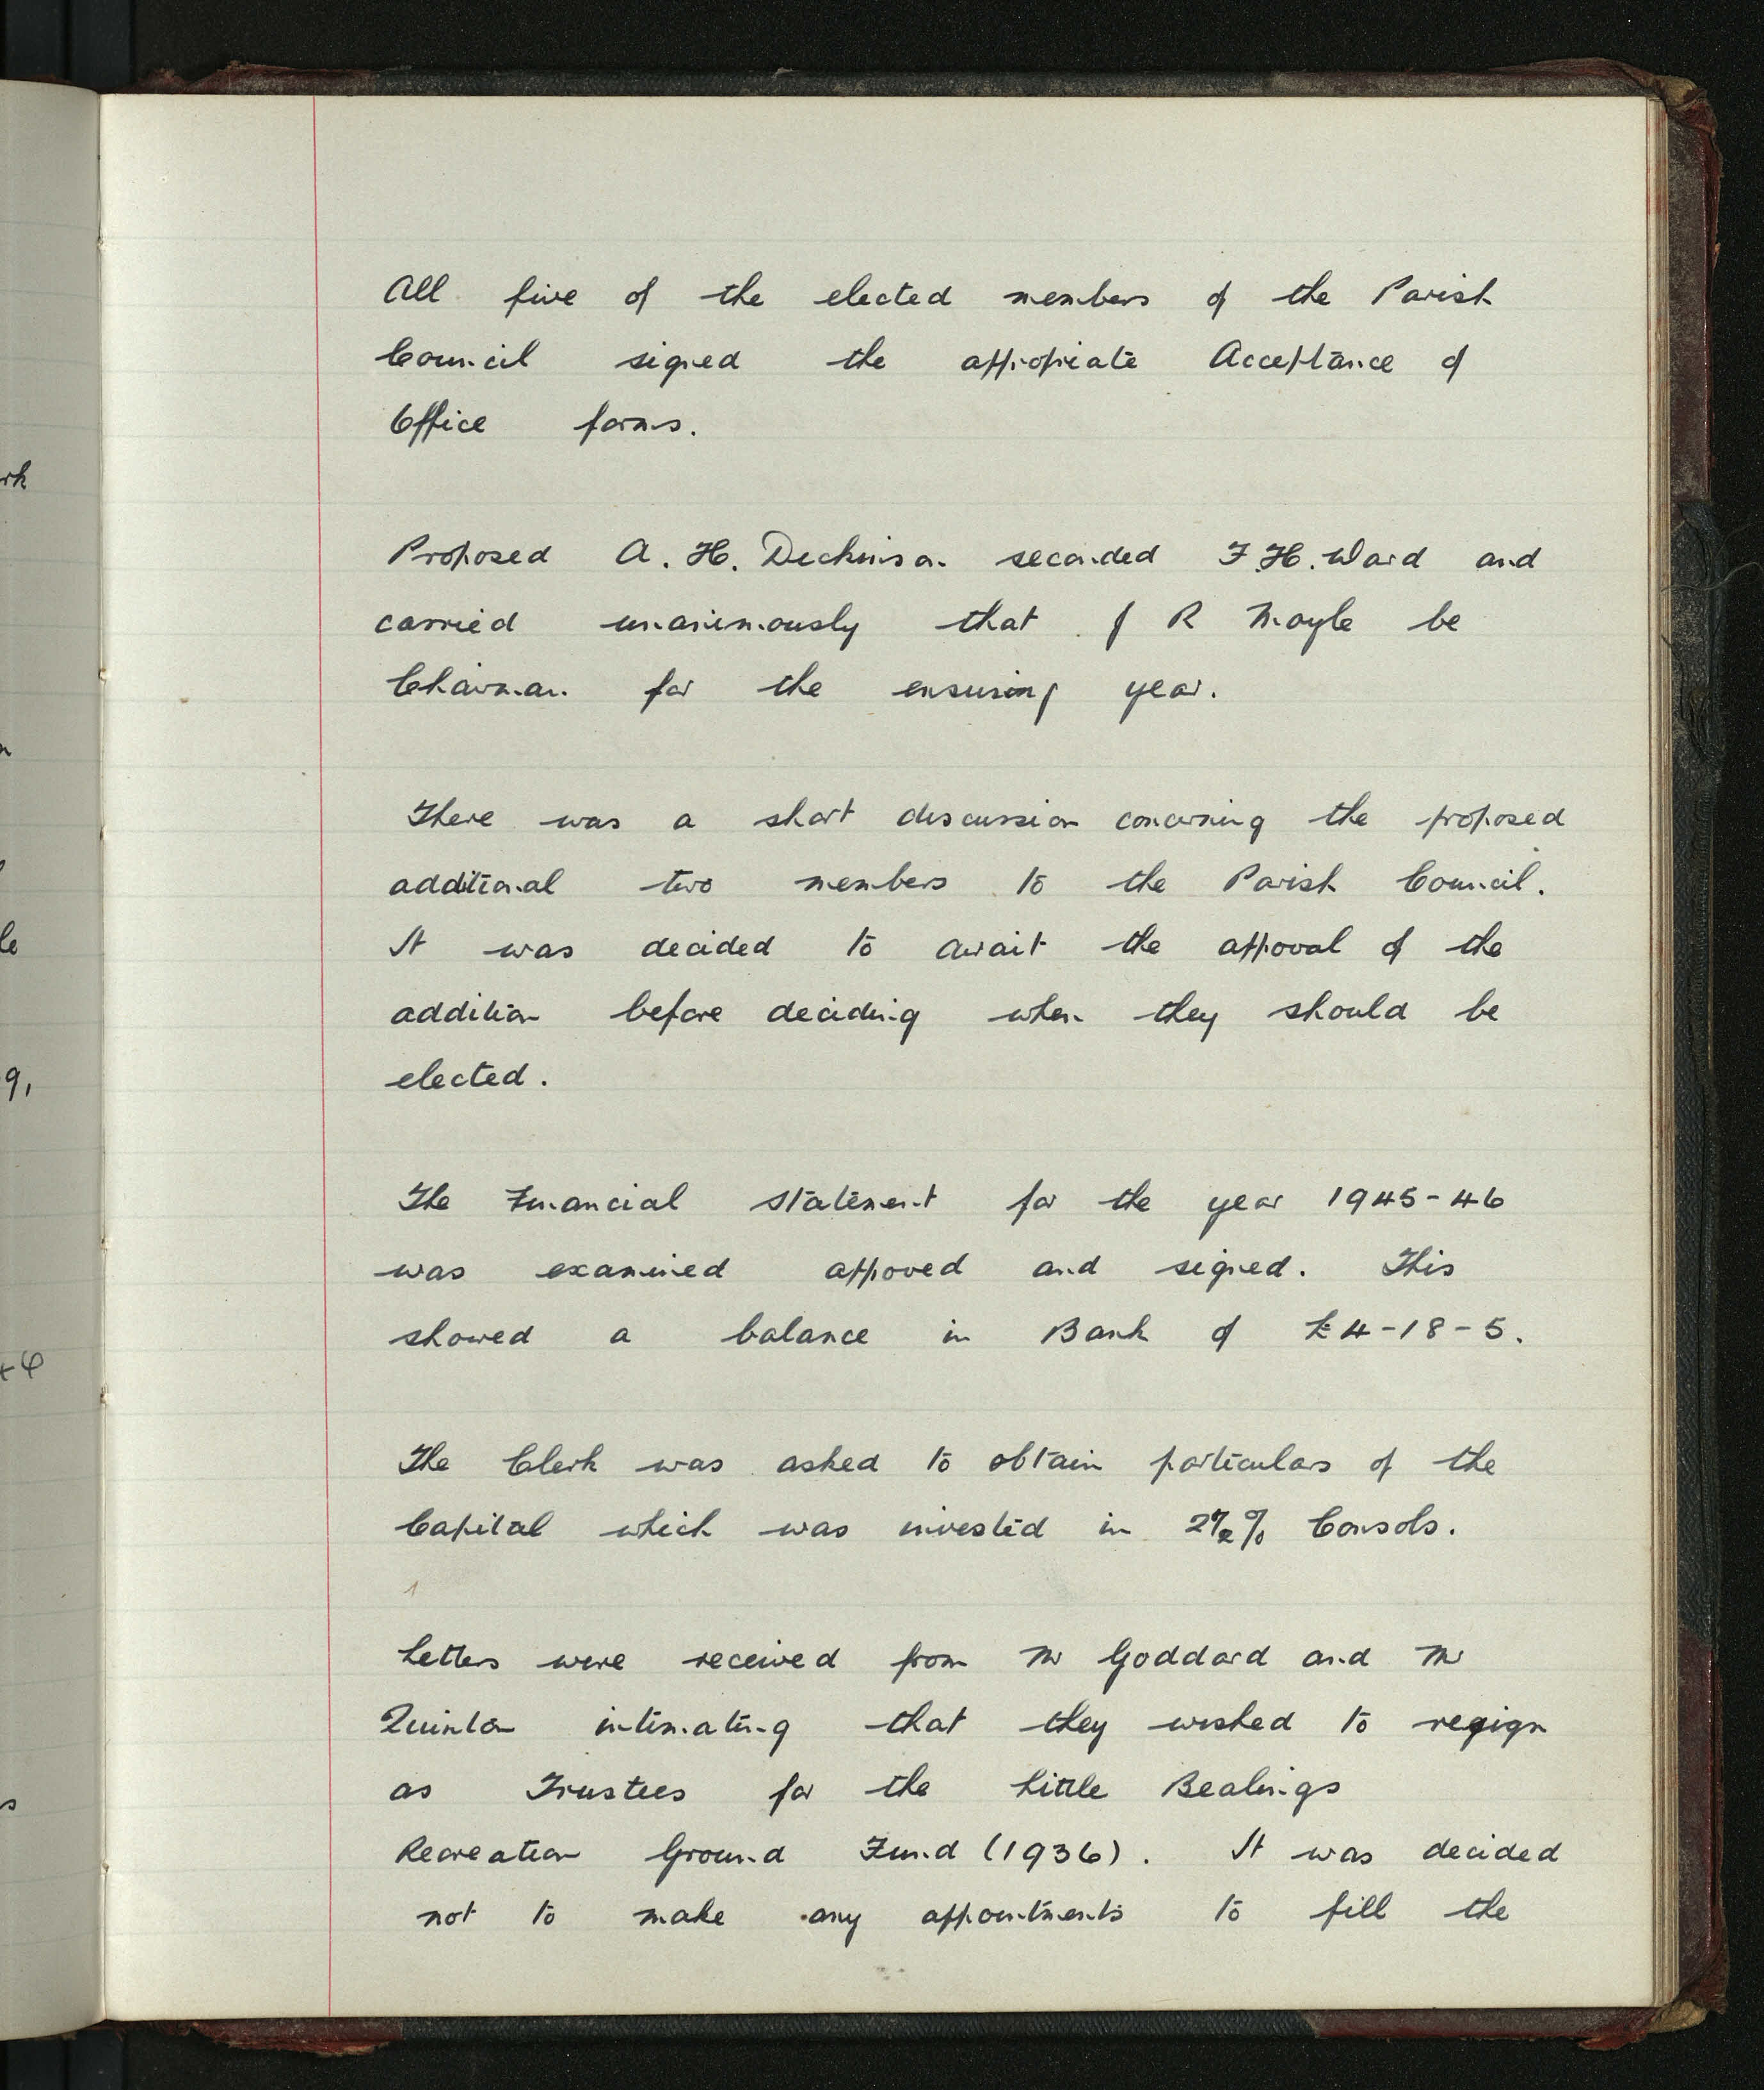 All five of the elected members of the Parish
Council signed the appropriate Acceptance of
Office forms.
Proposed A. H. Dickinson seconded F. H. Ward and
carried unanimously that J R Moyle be
Chairman for the ensuing year.
There was a short discussion concerning the proposed
additional two members to the Parish Council.
It was decided to await the approval of the
addition before deciding when they should be
elected.
The Financial Statement for the year 1945-46
was examined approved and signed. This
showed a balance in Bank of £4-18-5.
The Clerk was asked to obtain particulars of the
Capital which was invested in 2½% Consols.
Letters were received from Mr Goddard and Mr
Quinton intimating that they wished to resign
as Trustees for the Little Bealings
Recreation Ground Fund (1936). It was decided
not to make any appointments to fill the